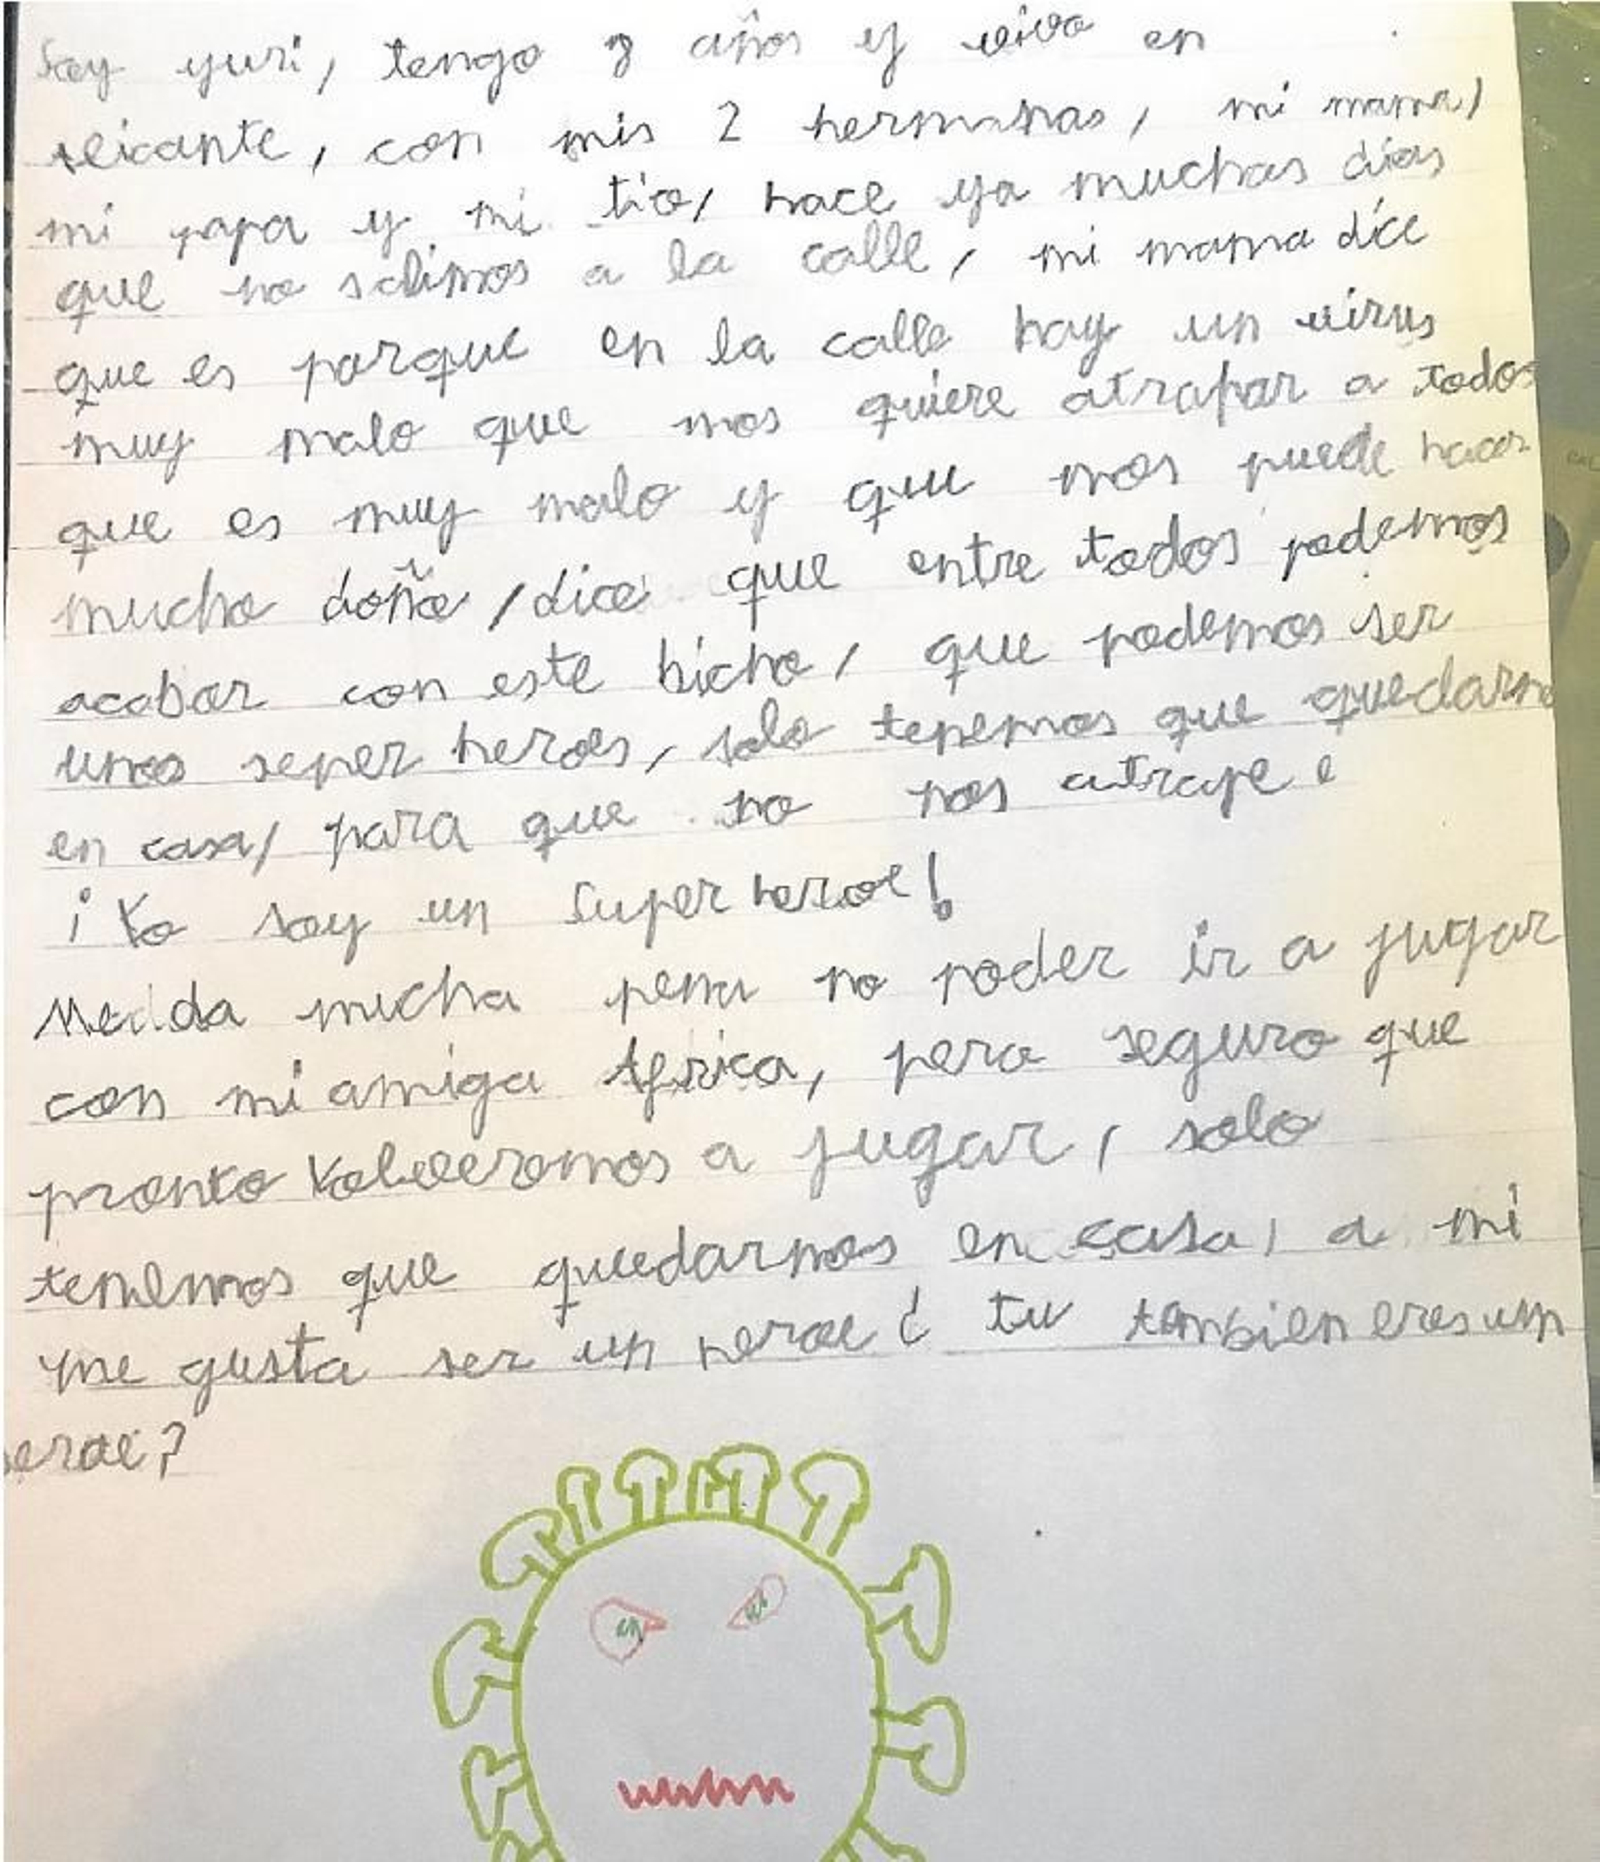 Soy yuri, tengo 8 años y vivo en
alicante, con mis 2 hermanas, mi mama,
mi papa y mi tio, hace ya muchas dias
que no salimos a la calle, mi mama dice
que es porque en la calle hay un virus
muy malo que nos quiere atrapar a todos
que es muy malo y que nos puede hacer
mucho doño, dice que entre todos podemos
acabar con este bicho, que podemos ser
unos seper heroes, solo tenemos que quedarno
en casa, para que no nos atrape e
¡Yo soy un Super heroe!
Me da mucha pena no poder ir a jugar
con mi amiga Africa, pero seguro que
pronto volveremos a jugar, solo
tenemos que quedarnos en casa, a mi
me gusta ser un heroe ¿ tu tambien eres un
eroe?